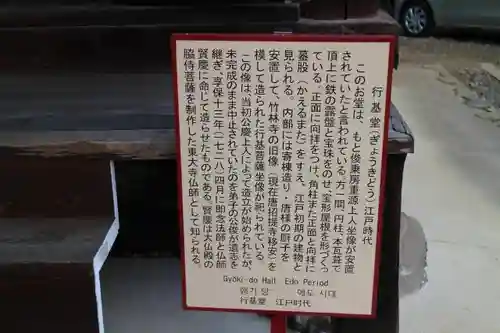 行基堂(ぎょうきどう)江戸時代
このお堂は、もと俊乗房重源上人坐像が安置
されていたと言われている。方一間、円柱、本瓦葺で
頂上に鉄の露盤と宝珠をのせ、宝形屋根を形づくっ
ている。正面に向拝をつけ、角柱また正面と向拝に
蟇股(かえるまた)をすえ、江戸初期の建物と
見られる。内部には寄棟造り・唐様の厨子を
安置して、竹林寺の旧像(現在唐招提寺移安)を
模して造られた行基菩薩坐像が祀られている。
この像は、当初公慶上人によって造立が始められたが、
未完成のまま中止されていたのを弟子の公俊が遺志を
継ぎ、享保十三年(一七二八)四月に即念法師と仏師
賢慶に命じて造らせたものである。賢慶は大仏殿の
脇侍菩薩を制作した東大寺仏師として知られる。
Gyōki-do Hall Edo Period
행기 당 에도 시대
行基堂 江戸时代